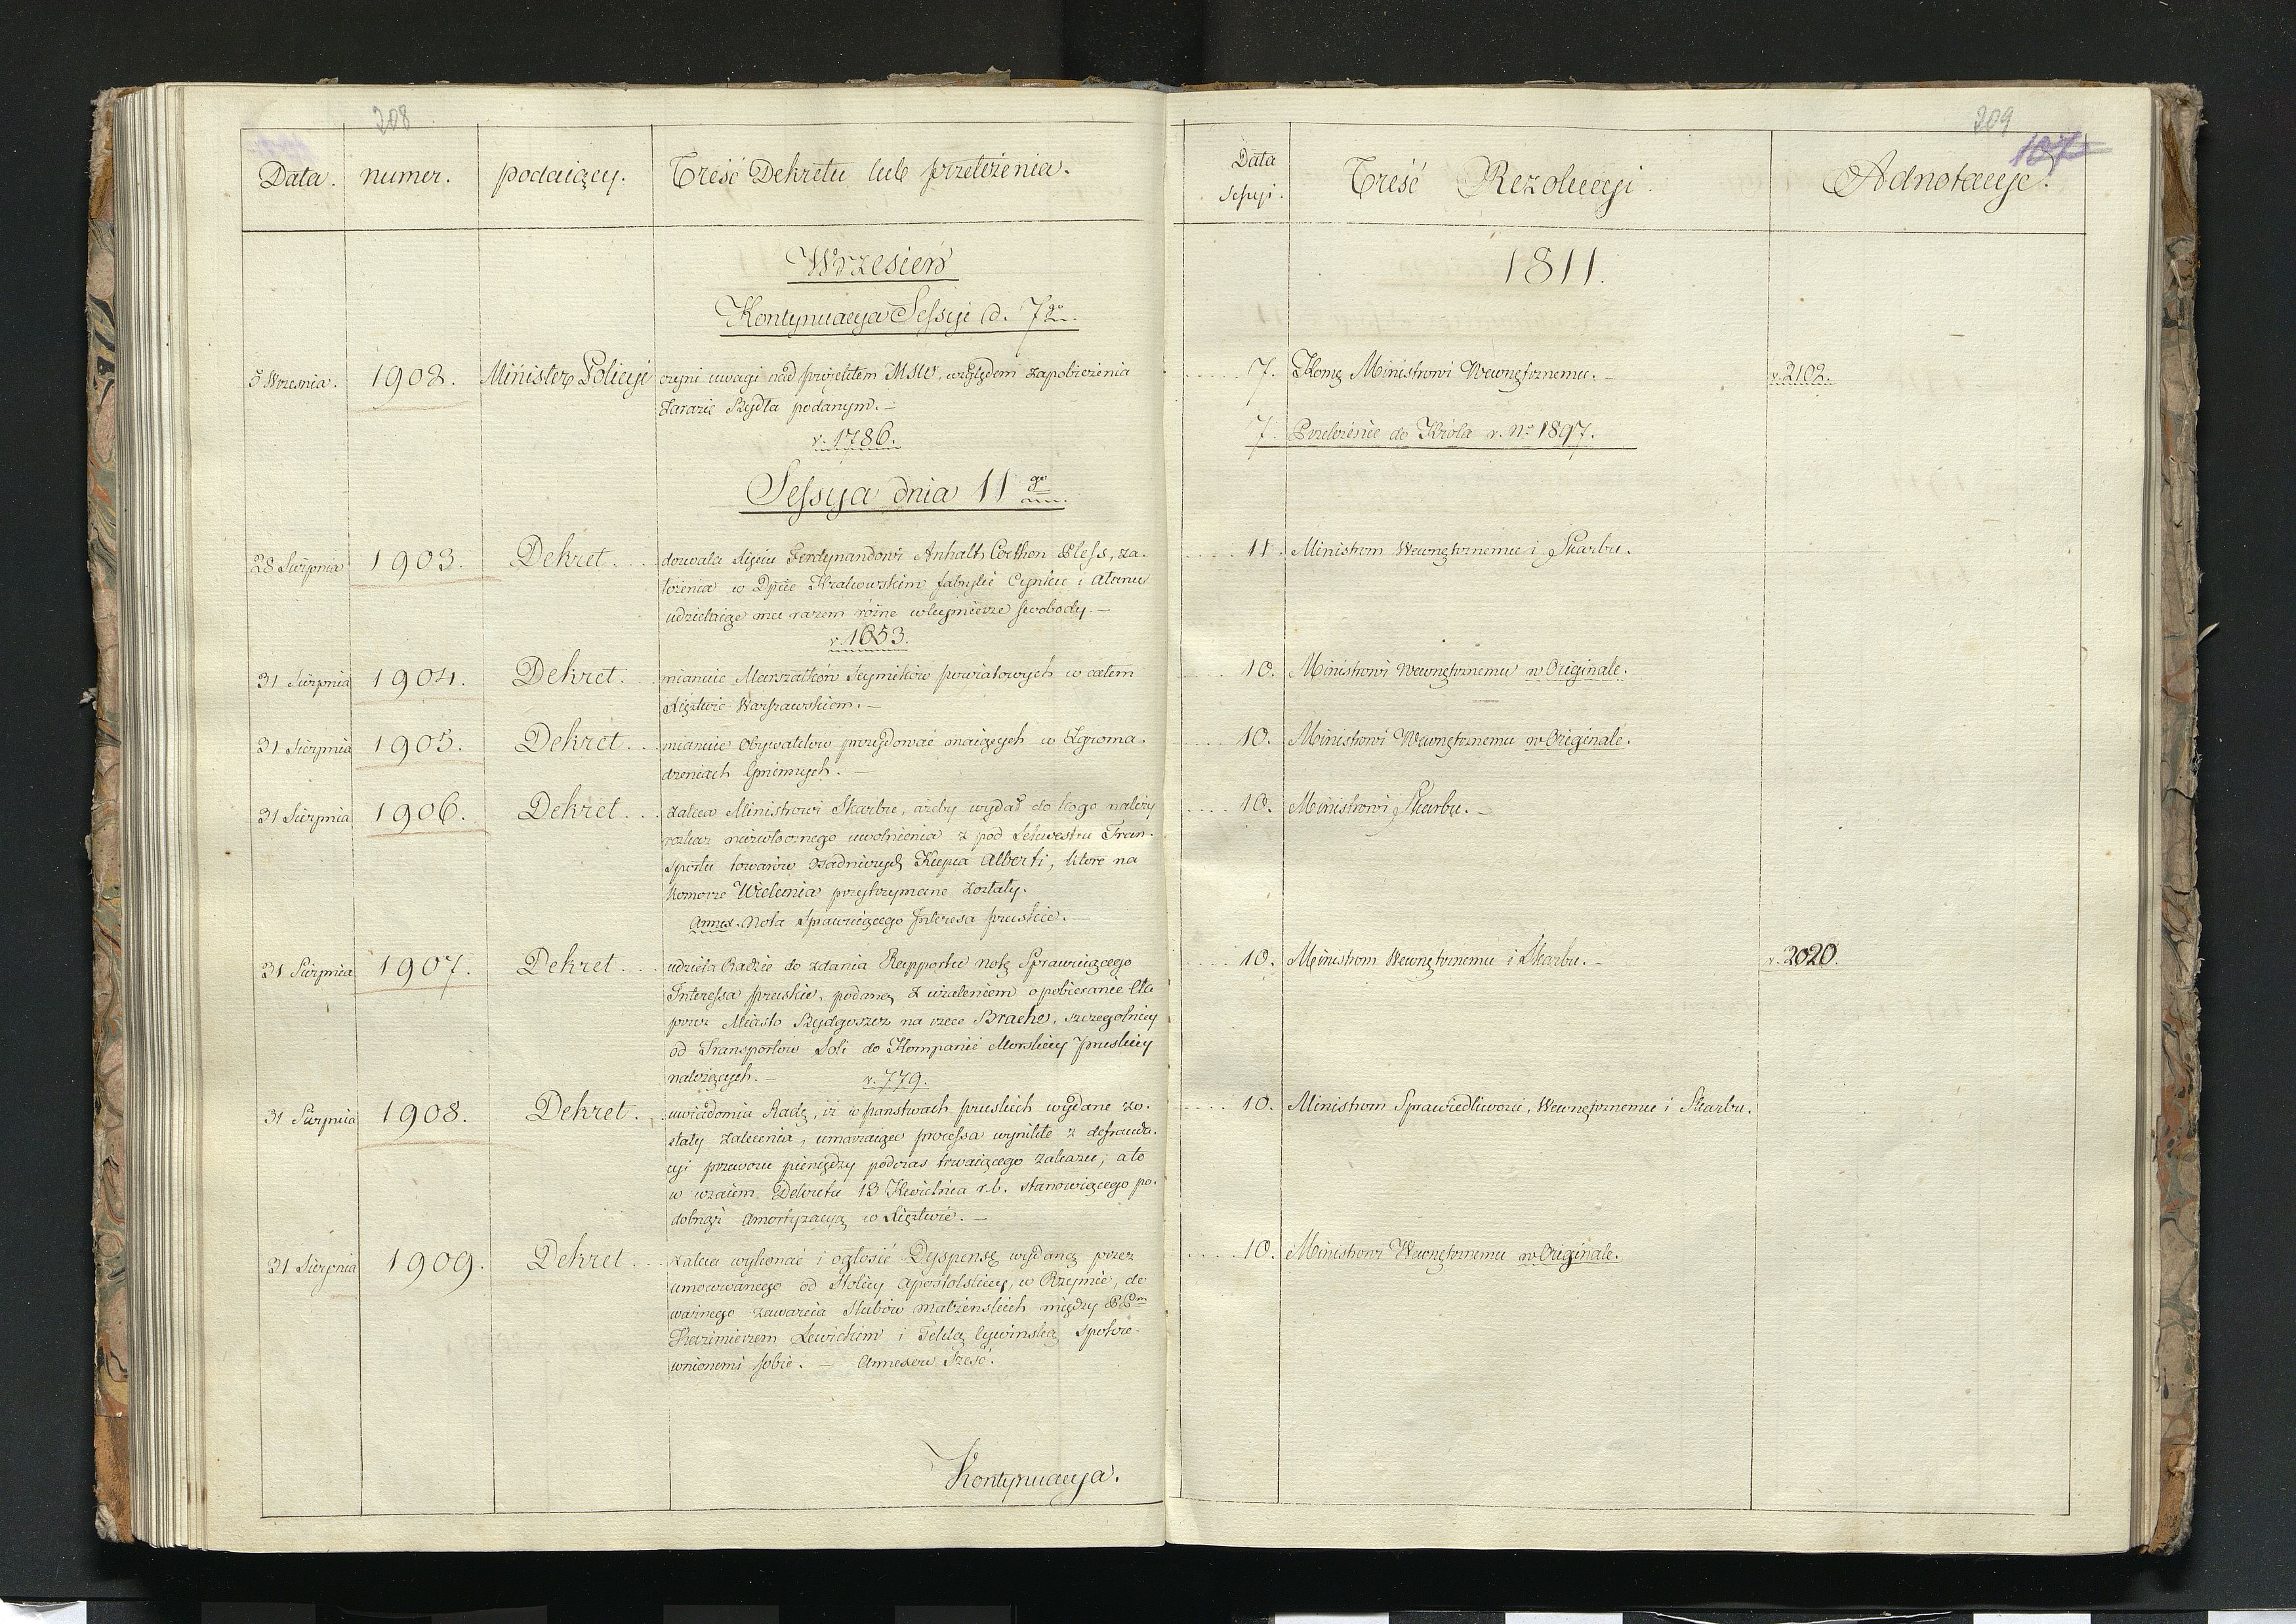 208
Data. numer. podaiący. Treść Dekretu lub przełożenia.
Wrzesień
Kontynuacya Sessyi d. 7go
5 Wrzesnia. 1902. Minister Policyi czyni uwagi nad projektem MSW, względem zapobieżenia
zarazie Bydła podanym. —
v. 1786.
Sessya dnia 11go
28 Sierpnia 1903. Dekret. dozwala Xięciu Ferdynandowi Anhalt Coethen Pless, za-
łożenia w Dpcie Krakowskim fabryki Cynku i Ałunu
udzielaiąc mu razem różne w tey mierze swobody. —
v. 1653.
31 Sierpnia 1904. Dekret. mianuie Marszałków Seymików powiatowych w całem
Xięztwie Warszawskiem. —
31 Sierpnia 1905. Dekret. mianuie Obywatelow prezydować maiących w Zgroma-
dzeniach Gminnych. —
31 Sierpnia 1906. Dekret. zaleca Ministrowi Skarbu, ażeby wydał do kogo należy
rozkaz niezwłocznego uwolnienia z pod Sekwestru Tran-
sportu towarów osadniczych Kupca Alberti, ktore na
Komorze Wielunia przytrzymane zostały.
Annex. Nota Sprawuiącego Interesa pruskie. —
31 Sierpnia 1907. Dekret. udziela Radzie do zdania Rapportu notę Sprawuiącego
Interessa pruskie, podaną z użaleniem o pobieranie Cła
przez Miasto Bydgoszcz na rzece Brache, szczegolniey
od Transportow Soli do Kompanii Morskiey pruskiey
należących. — v. 779.
31 Sierpnia 1908. Dekret. uwiadomia Radę, iż w panstwach pruskich wydane zo-
stały zalecenia, umarzaiące processa wynikłe z defrauda-
cyi przewozu pieniędzy podczas trwaiącego zakazu; a to
w wzaiem Dekretu 13 Kwietnia r.b. stanowiącego po-
dobnąż amortyzacyą w Xięztwie. —
31 Sierpnia 1909. Dekret. zaleca wykonać i ogłosić Dyspensę wydaną przez
umocowanego od Stolicy Apostolskiey, w Rzymie, do
ważnego zawarcia Slubów małżenskich między
Kazimierzem Lewickim i Teklą Cywinską spokre-
wnionemi sobie. — Annexow Sześć.
Kontynuacya.
209
107
Data Sessyi. Treść Rezolucyi. Adnotacye.
1811.
7. Kom. Ministrowi Wewnętrznemu. — v. 2102.
7. Przełożenie do Króla v. No 1897.
11. Ministrom Wewnętrznemu i Skarbu.
10. Ministrowi Wewnętrznemu w Originale.
10. Ministrowi Wewnętrznemu w Originale.
10. Ministrowi Skarbu. —
10. Ministrom Wewnętrznemu i Skarbu. — v. 2020.
10. Ministrom Sprawiedliwości, Wewnętrznemu i Skarbu.
10. Ministrowi Wewnętrznemu w Originale.